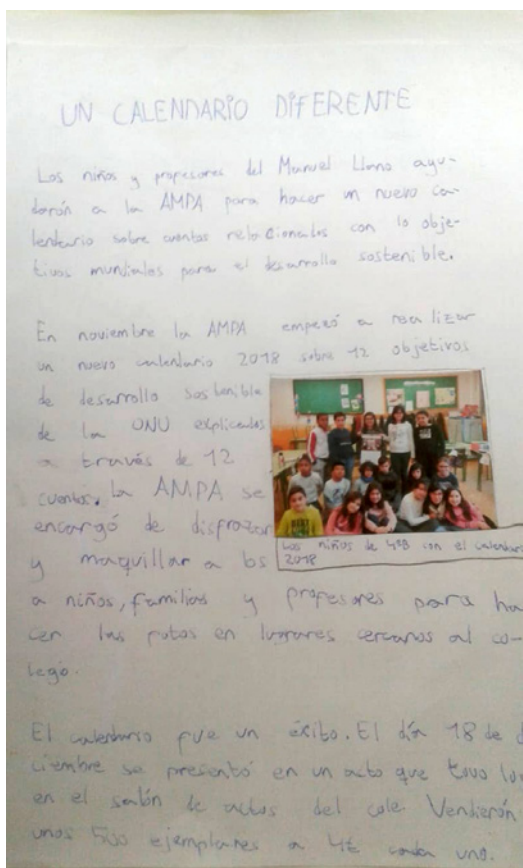 UN CALENDARIO DIFERENTE
Los niños y profesores del Manuel Llano ayu-
darón a la AMPA para hacer un nuevo ca-
lendario sobre cuentos relacionados con lo obje-
tivos mundiales para el desarrollo sostenible.
En noviembre la AMPA empezó a realizar
un nuevo calendario 2018 sobre 12 objetivos
de desarrollo sostenible
de la ONU explicados
a través de 12
cuentos. La AMPA se
encargó de disfrazar
y maquillar a los
Los niños de 4ºB con el calendario
2018
a niños, familias y profesores para ha
cer las fotos en lugares cercanos al co-
legó.
El calendario fue un éxito. El día 18 de d
ciembre se presentó en un acto que tuvo lu
en el salón de actos del cole. Vendierón
unos 500 ejemplares a 4€ cada uno.